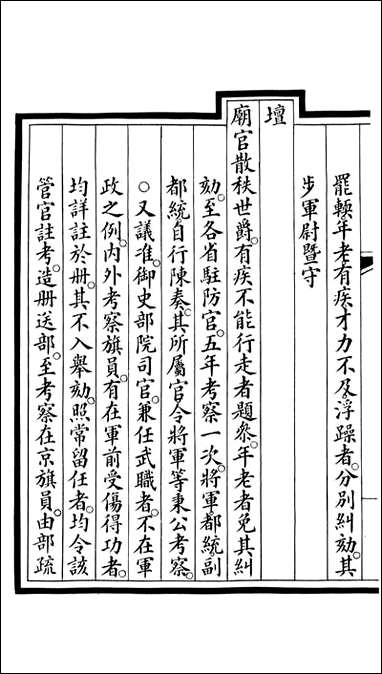 罷輭年老有疾才力不及浮躁者分別糾劾其
步軍尉暨守
壇
廟官散秩世爵有疾不能行走者題叅年老者免其糾
劾至各省駐防官五年考察一次將軍都統副
都統自行陳奏其所屬官令將軍等秉公考察
○又議准御史部院司官兼任武職者不在軍
政之例內外考察旗員有在軍前受傷得功者
均詳註於册其不入舉劾照常留任者均令該
管官註考造册送部至考察在京旗員由部疏